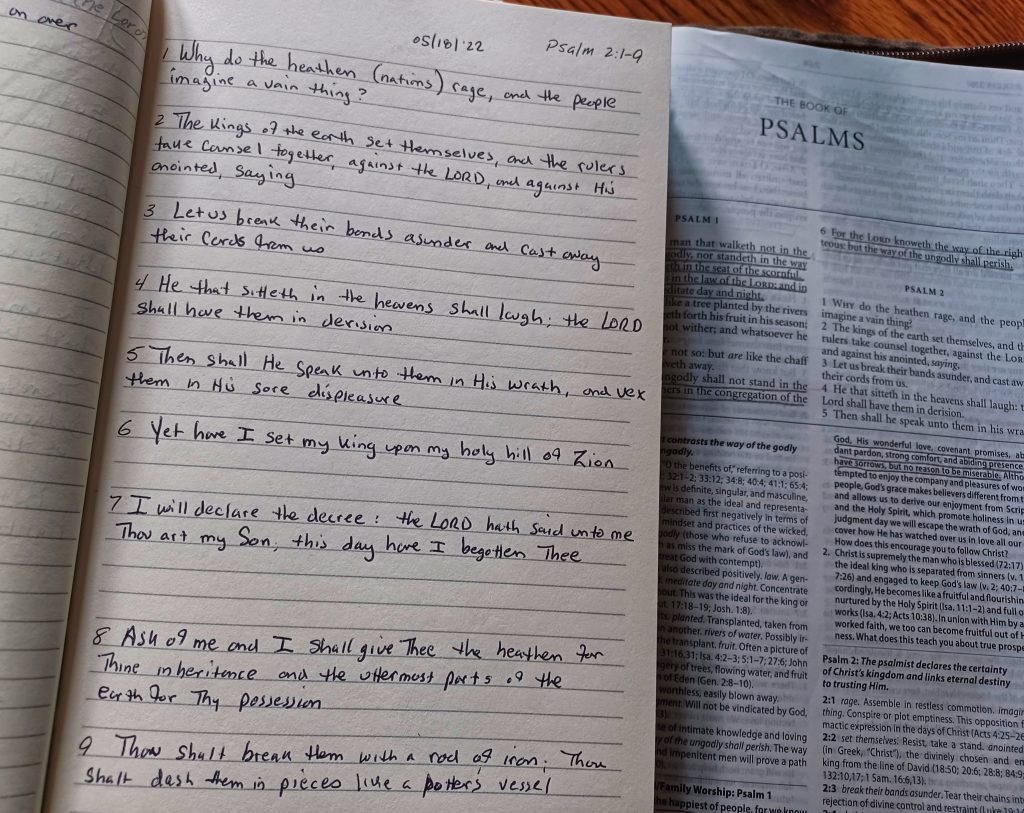 on over
05/18/'22 Psalm 2:1-9
1 Why do the heathen (nations) rage, and the people
imagine a vain thing?
2 The Kings of the earth set themselves, and the rulers
take counsel together, against the LORD, and against His
anointed, saying
3 Let us break their bonds asunder and cast away
their cords from us
4 He that sitteth in the heavens shall laugh; the LORD
shall have them in derision
5 Then shall He speak unto them in His wrath, and vex
them in His sore displeasure
6 Yet have I set my king upon my holy hill of Zion
7 I will declare the decree: the LORD hath said unto me
Thou art my Son; this day have I begotten Thee
8 Ask of me and I shall give Thee the heathen for
Thine inheritance and the uttermost parts of the
earth for Thy possession
9 Thou shalt break them with a rod of iron; Thou
shalt dash them in pieces like a potter's vessel
THE BOOK OF
PSALMS
PSALM 1
man that walketh not in the
odly, nor standeth in the way
th in the seat of the scornful.
in the law of the LORD; and in
ditate day and night.
like a tree planted by the rivers
eth forth his fruit in his season;
not wither; and whatsoever he
not so: but are like the chaff
veth away.
ngodly shall not stand in the
ners in the congregation of the
6 For the LORD knoweth the way of the righ
teous: but the way of the ungodly shall perish.
PSALM 2
1 WHY do the heathen rage, and the peopl
imagine a vain thing?
2 The kings of the earth set themselves, and th
rulers take counsel together, against the LOR
and against his anointed, saying,
3 Let us break their bands asunder, and cast aw
their cords from us.
4 He that sitteth in the heavens shall laugh: t
Lord shall have them in derision.
5 Then shall he speak unto them in his wra
t contrasts the way of the godly
ngodly.
"O the benefits of," referring to a posi-
32:1–2; 33:12; 34:8; 40:4; 41:1; 65:4;
w is definite, singular, and masculine,
lar man as the ideal and representa-
described first negatively in terms of
mindset and practices of the wicked,
godly (those who refuse to acknowl-
as miss the mark of God's law), and
reat God with contempt).
also described positively. law. A gen-
meditate day and night. Concentrate
out. This was the ideal for the king or
ut. 17:18–19; Josh. 1:8).
s. planted. Transplanted, taken from
n another. rivers of water. Possibly ir-
the transplant. fruit. Often a picture of
31:16,31; Isa. 4:2–3; 5:1–7; 27:6; John
gery of trees, flowing water, and fruit
n of Eden (Gen. 2:8–10).
worthless, easily blown away.
gment. Will not be vindicated by God,
se of intimate knowledge and loving
y of the ungodly shall perish. The way
nd impenitent men will prove a path
/Family Worship: Psalm 1
he happiest of people, for we know
God, His wonderful love, covenant promises, ab
dant pardon, strong comfort, and abiding presence
have sorrows, but no reason to be miserable. Altho
tempted to enjoy the company and pleasures of wor
people, God's grace makes believers different from t
and allows us to derive our enjoyment from Scrip
and the Holy Spirit, which promote holiness in us
judgment day we will escape the wrath of God, and
cover how He has watched over us in love all our
How does this encourage you to follow Christ?
2. Christ is supremely the man who is blessed (72:17)
the ideal king who is separated from sinners (v. 1
7:26) and engaged to keep God's law (v. 2; 40:7–
cordingly, He becomes like a fruitful and flourishin
nurtured by the Holy Spirit (Isa. 11:1–2) and full o
works (Isa. 4:2; Acts 10:38). In union with Him by a
worked faith, we too can become fruitful out of h
ness. What does this teach you about true prospe
Psalm 2: The psalmist declares the certainty
of Christ's kingdom and links eternal destiny
to trusting Him.
2:1 rage. Assemble in restless commotion. imagin
thing. Conspire or plot emptiness. This opposition
mactic expression in the days of Christ (Acts 4:25–26
2:2 set themselves. Resist, take a stand. anointed
(in Greek, "Christ"), the divinely chosen and en
king from the line of David (18:50; 20:6; 28:8; 84:9
132:10,17; 1 Sam. 16:6,13).
2:3 break their bands asunder. Tear their chains int
rejection of divine control and restraint (Luke 19:14